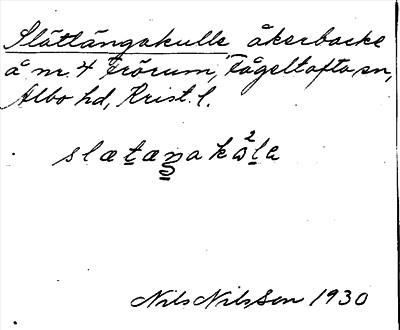 Slättängakulle åkerbacke
å nr. 4 Frörum, Fågeltofta sn,
Albo hd, Krist. l.
slætæŋakɷ²lɐ
Nils Nilsson 1930